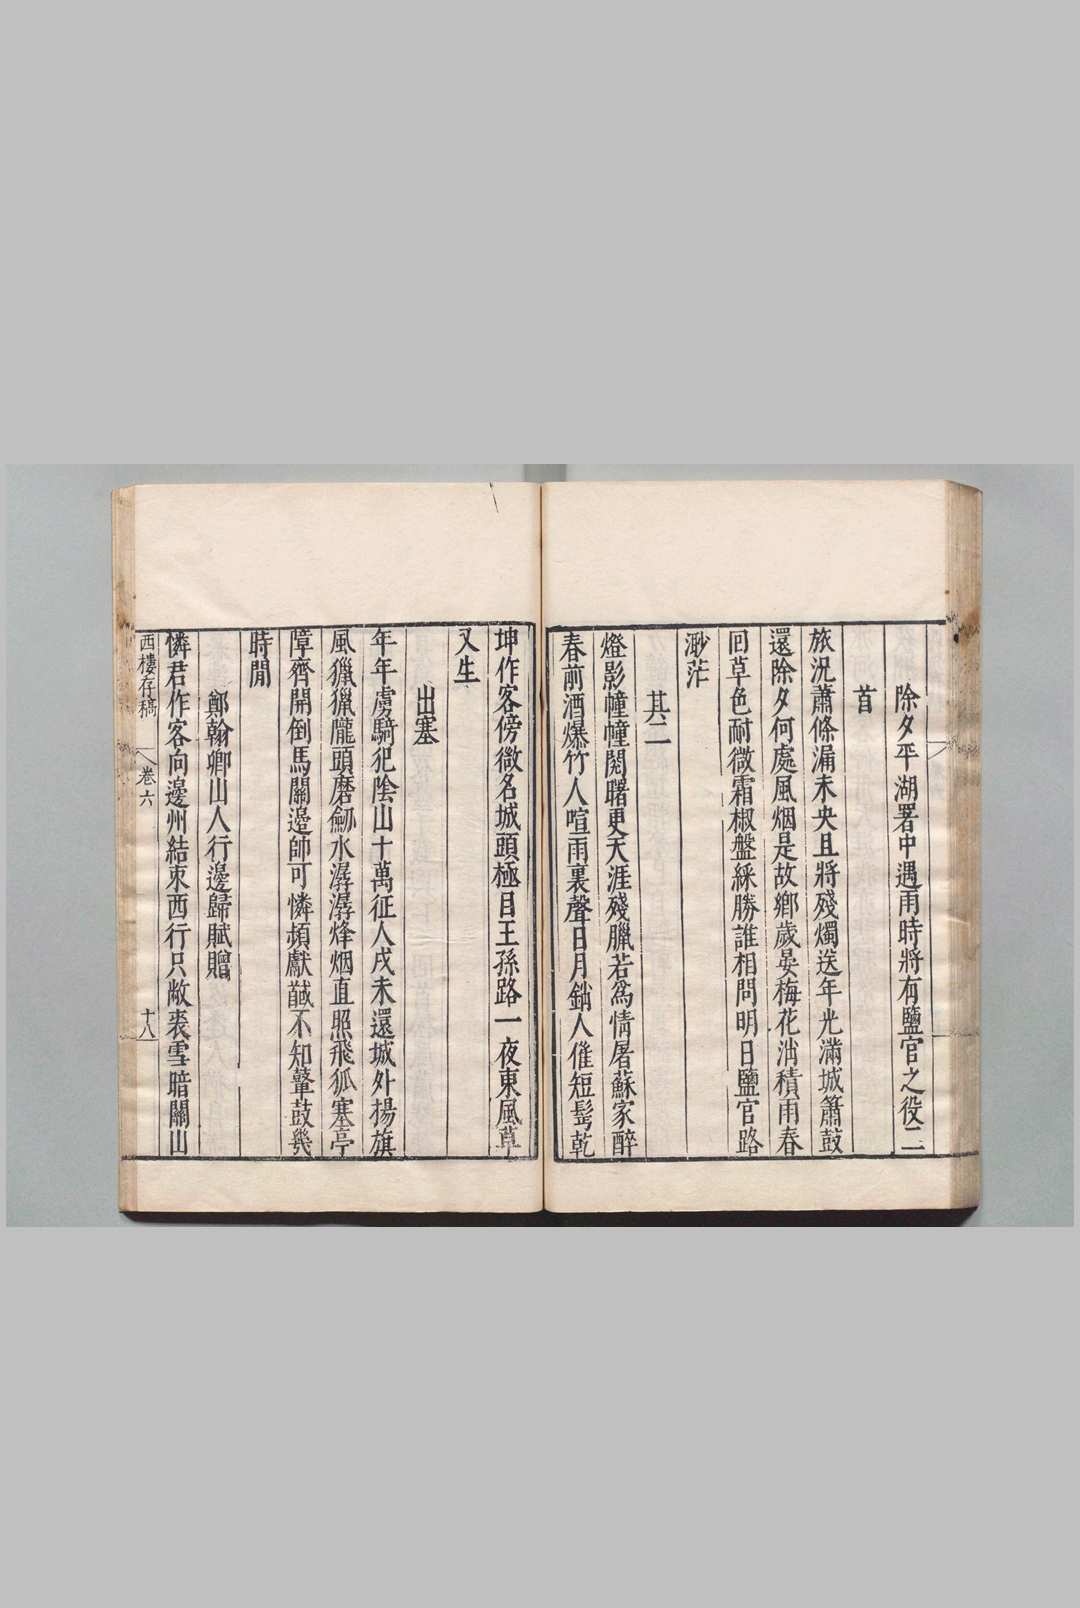 除夕平湖署中遇雨時將有鹽官之役二
首
旅況蕭條漏未央且將殘燭送年光滿城簫鼓
還除夕何處風烟是故鄉歲晏梅花消積雨春
回草色耐微霜椒盤綵勝誰相問明日鹽官路
渺茫
其二
燈影幢幢閱曙更天涯殘臘若為情屠蘇家醉
春前酒爆竹人喧雨裏聲日月銷人催短髩乾
坤作客傍微名城頭極目王孫路一夜東風草
又生
出塞
年年虜騎犯陰山十萬征人戍未還城外揚旗
風獵獵隴頭磨劒水潺潺烽烟直照飛狐塞亭
障齊開倒馬關邉帥可憐頻獻馘不知鼙鼓幾
時閒
鄭翰卿山人行邊歸賦贈
憐君作客向邊州結束西行只敝裘雪暗關山
西樓存稿 卷六 十八